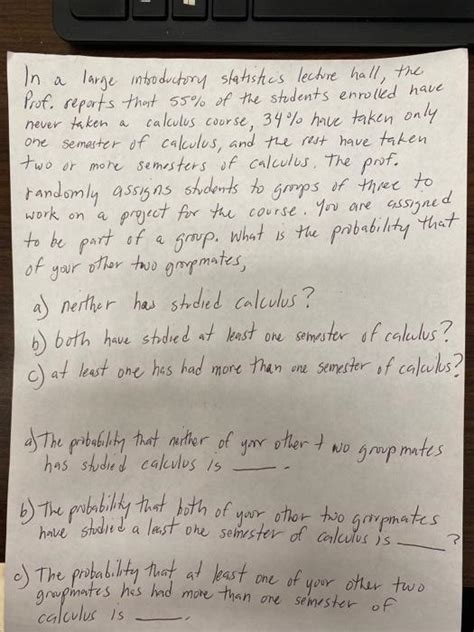 In a large introductory statistics lecture hall, the
Prof. reports that 55% of the students enrolled have
never taken a calculus course, 34% have taken only
one semester of calculus, and the rest have taken
two or more semesters of calculus. The prof.
randomly assigns students to groups of three to
work on a project for the course. You are assigned
to be part of a group. What is the probability that
of your other two groupmates,
a) neither has studied calculus?
b) both have studied at least one semester of calculus?
c) at least one has had more than one semester of calculus?
a) The probability that neither of your other two groupmates
has studied calculus is ____.
b) The probability that both of your other two groupmates
have studied a least one semester of calculus is ____?
c) The probability that at least one of your other two
groupmates has had more than one semester of
calculus is ____.